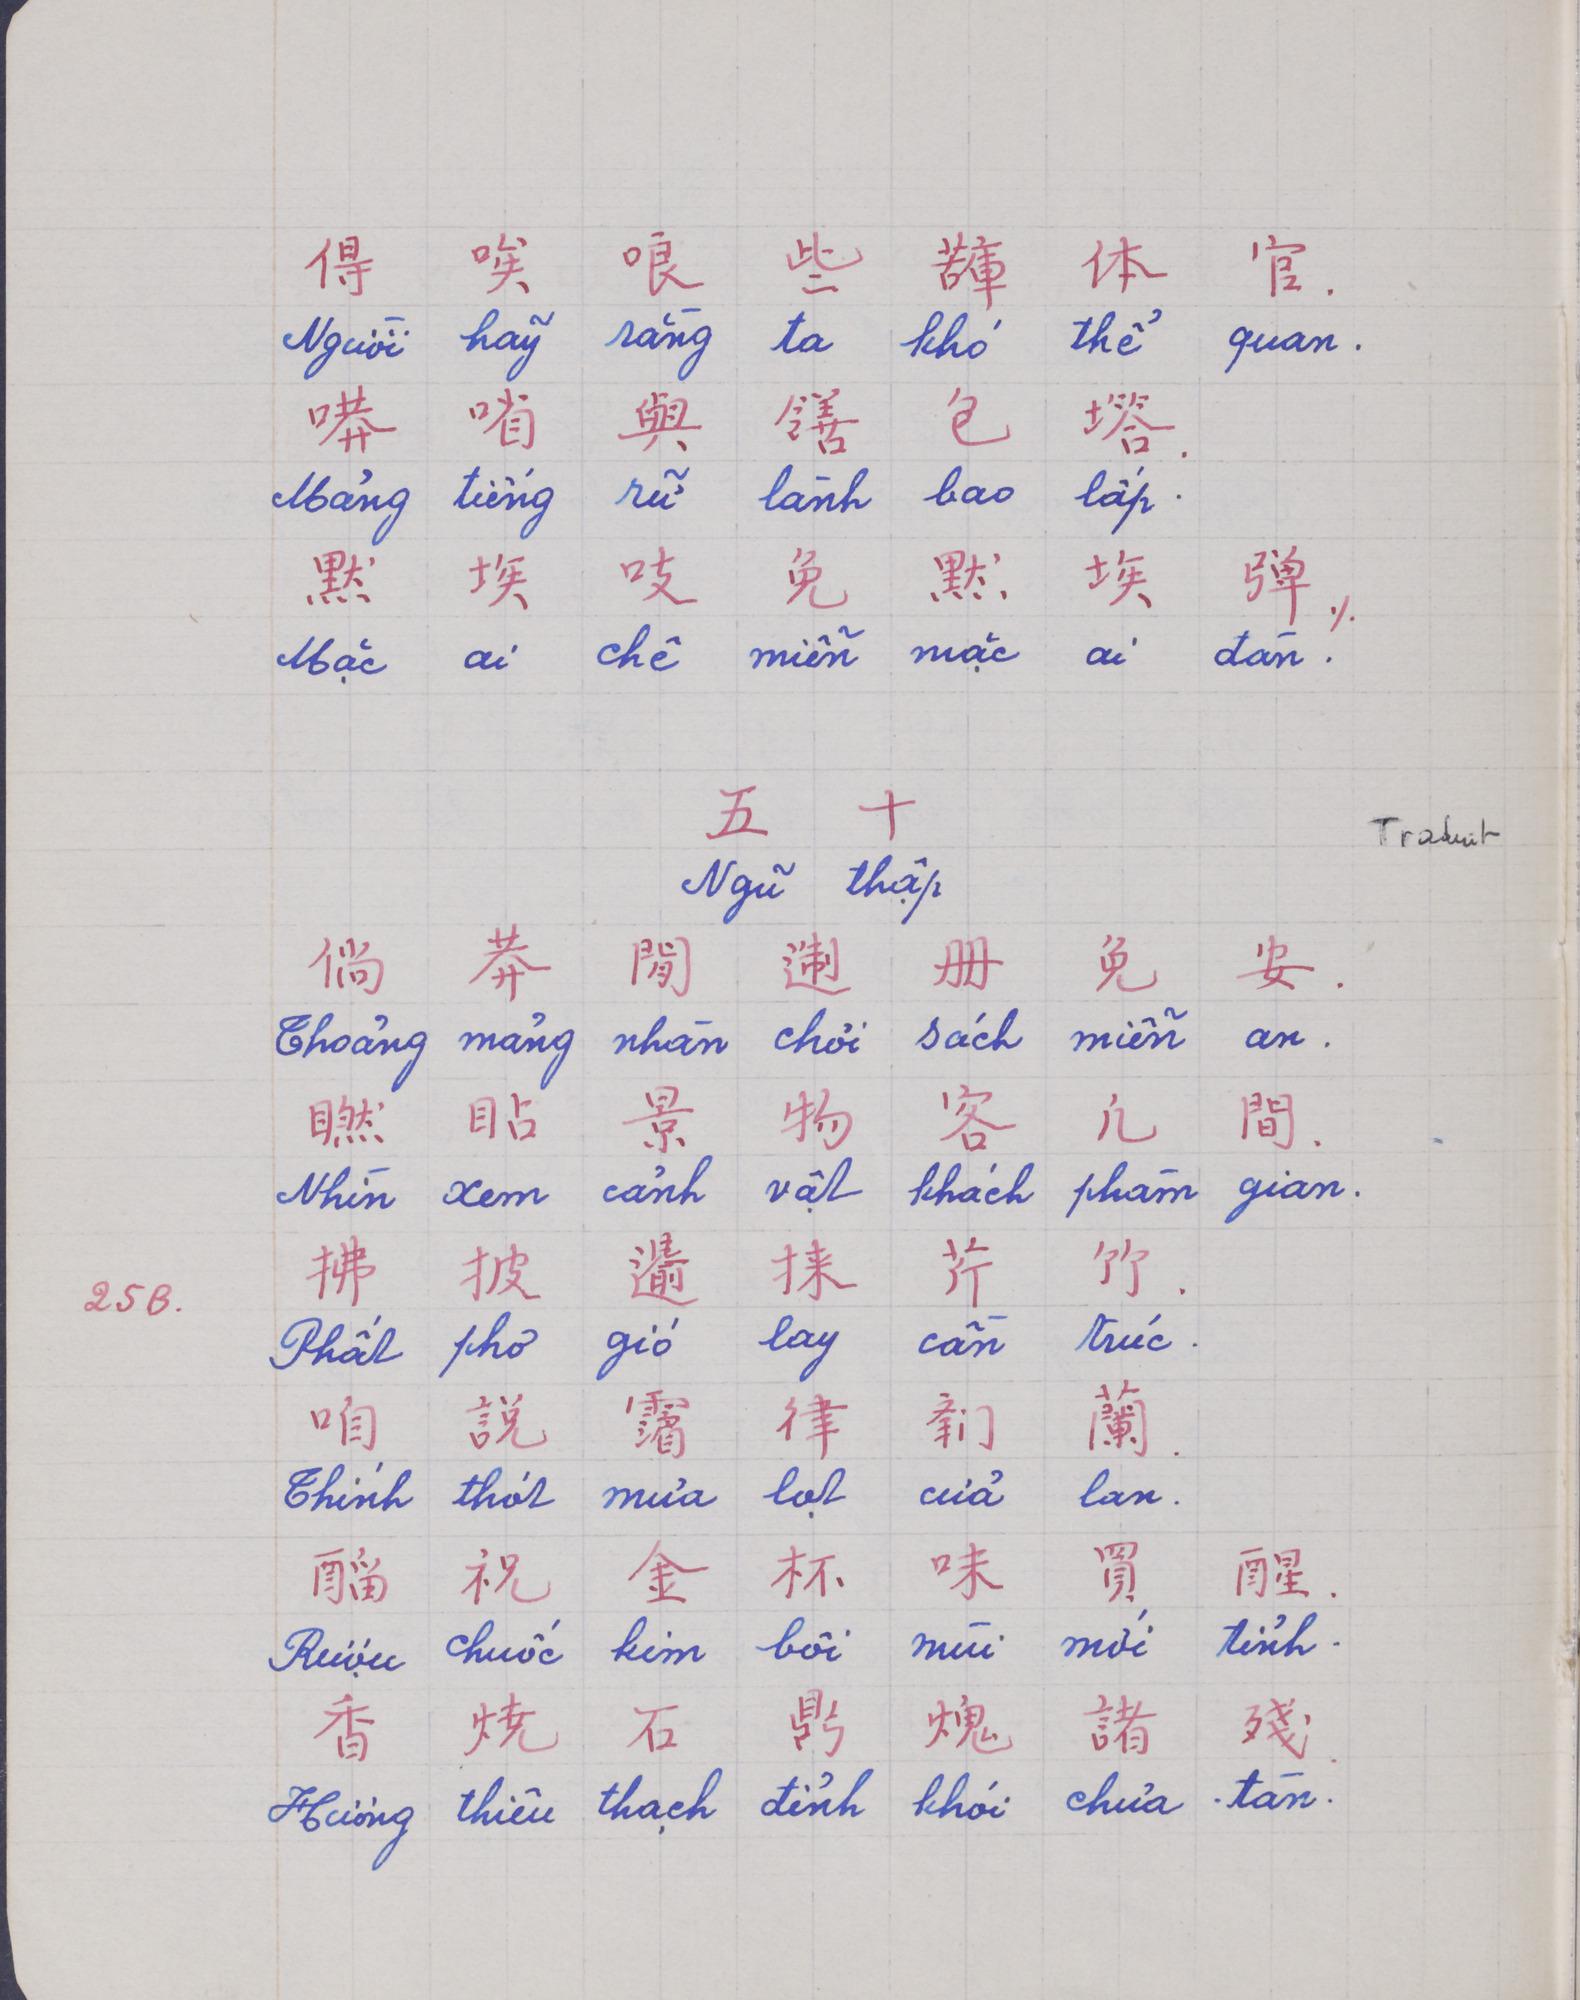 得 唉 哏 些 𧁷 体 官.
Người hãy rằng ta khó thể quan.
嗙 哨 與 饍 包 塔.
Mảng tiếng rữ lành bao lấp.
黙 埃 吱 免 黙 埃 弹 ⁒
Mặc ai chê miễn mặc ai đàn.
五 十
Traduit
Ngũ thập
倘 莽 閒 册 免 安.
Thoảng mảng nhàn chơi sách miễn an.
瞭 貼 景 物 客 凢 間.
Nhìn xem cảnh vật khách phàm gian.
拂 披 𨗺 捸 芹 竹.
25B.
Phất phơ gió lay cần trúc.
咱 説 𩅹 律 𨷯 蘭.
Thính thót mưa lọt cửa lan.
𨢇 祝 金 杯 味 買 醒.
Rượu chuốc kim bôi mùi mới tỉnh.
香 焼 石 鼎 𤌋 諸 殘.
Hương thiêu thạch đỉnh khói chửa tàn.